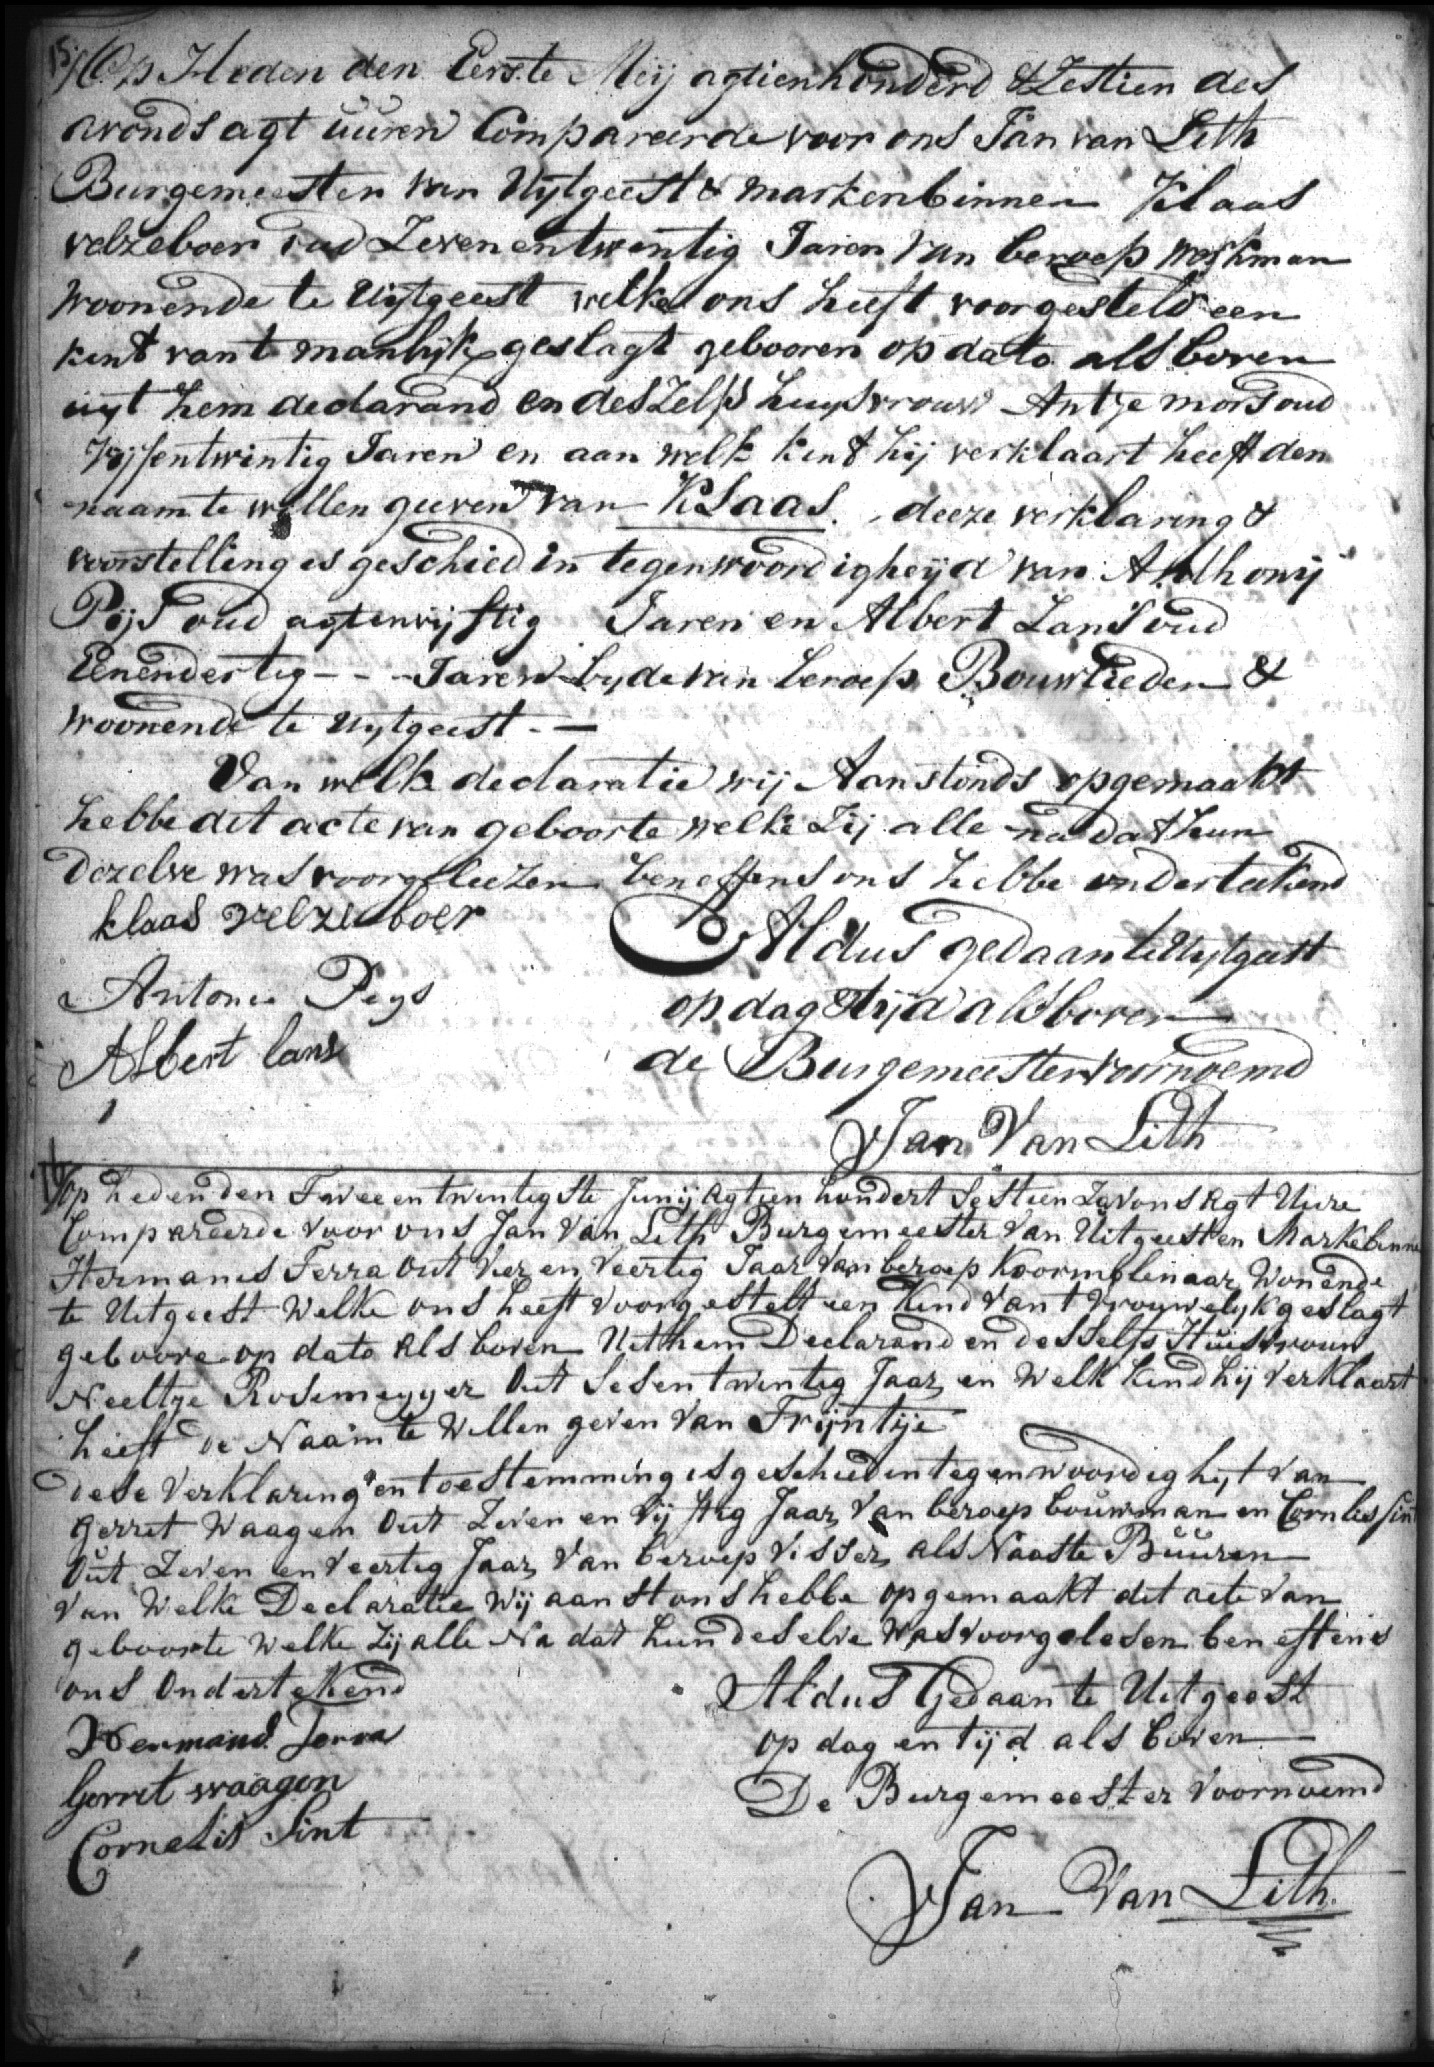 15/ Op Heden den Eerste Meij agtienhonderd & Zestien des
avonds agt uuren Compareerde voor ons Jan van Lith
Burgemeester van Uytgeest & markenbinnen Klaas
velzeboer oud Zevenentwentig Jaren van beroep werkman
woonende te Uytgeest welke ons heeft voorgesteld een
kint vant manlijk geslagt gebooren op dato als boven
uyt hem declarand en deszelfs huysvrouw Antje mors oud
Vyfentwintig Jaren en aan welk kint hij verklaart heeft den
naam te willen geeven van Klaas. deeze verklaring &
voorstelling is geschied in tegenwoordigheijd van Anthonij
Pijs oud agtenvijftig Jaren en Albert Lans oud
Eenendertig - - - Jaren byde van beroep Bouwlieden &
woonende te Uytgeest. —
Van welke declaratie wij Aanstonds opgemaakt
hebbe dit acte van geboorte welke Zij alle na dat hun
dezelve was voorgeleezen beneffens ons hebbe ondertekend
klaas velzeboer
Aldus gedaan te Uytgeest
Antonie Pеys
op dag & tijd als boven
Albert lans
de Burgemeester voornoemd
Jan Van Lith
16/ Op heden den Tweeentwintigste Junij Agtien hondert Sestien Zavons Agt Uure
Compareerde voor ons Jan Van Lith Burgemeester Van Uitgeest en Markebinne
Hermanus Ferra Out Vier en Veertig Jaar Van beroep Koornmolenaar Wonende
te Uitgeest Welke ons heeft Voorgestelt een Kind Vant Vrouwelyk geslagt
geboore op dato Als boven Uit hem Declarand en desselfs Huisvrouw
Neeltje Rosemeyger Out Sesentwintig Jaar en Welk kind hij Verklaart
heeft de Naam te Willen geven Van Trijntije
dese Verklaring en toestemming is geschied in tegenwoordighyt Van
Gerret Waagen Out Zeven en Vijftig Jaar Van beroep bouwman en Cornelis Sint
Out Zeven en Veertig Jaar Van beroep Visser als Naaste Buuren
Van Welke Declaratie Wij aanstons hebbe opgemaakt dit acte Van
geboorte Welke Zij alle Na dat hun deselve Was voorgelesen beneffens
ons Ondertekend
Aldus Gedaan te Uitgeest
Hermanus Ferra
op dag en tijd als boven
Gerret waagen
De Burgemeester Voornoemd
Cornelis Sint
Jan Van Lith.